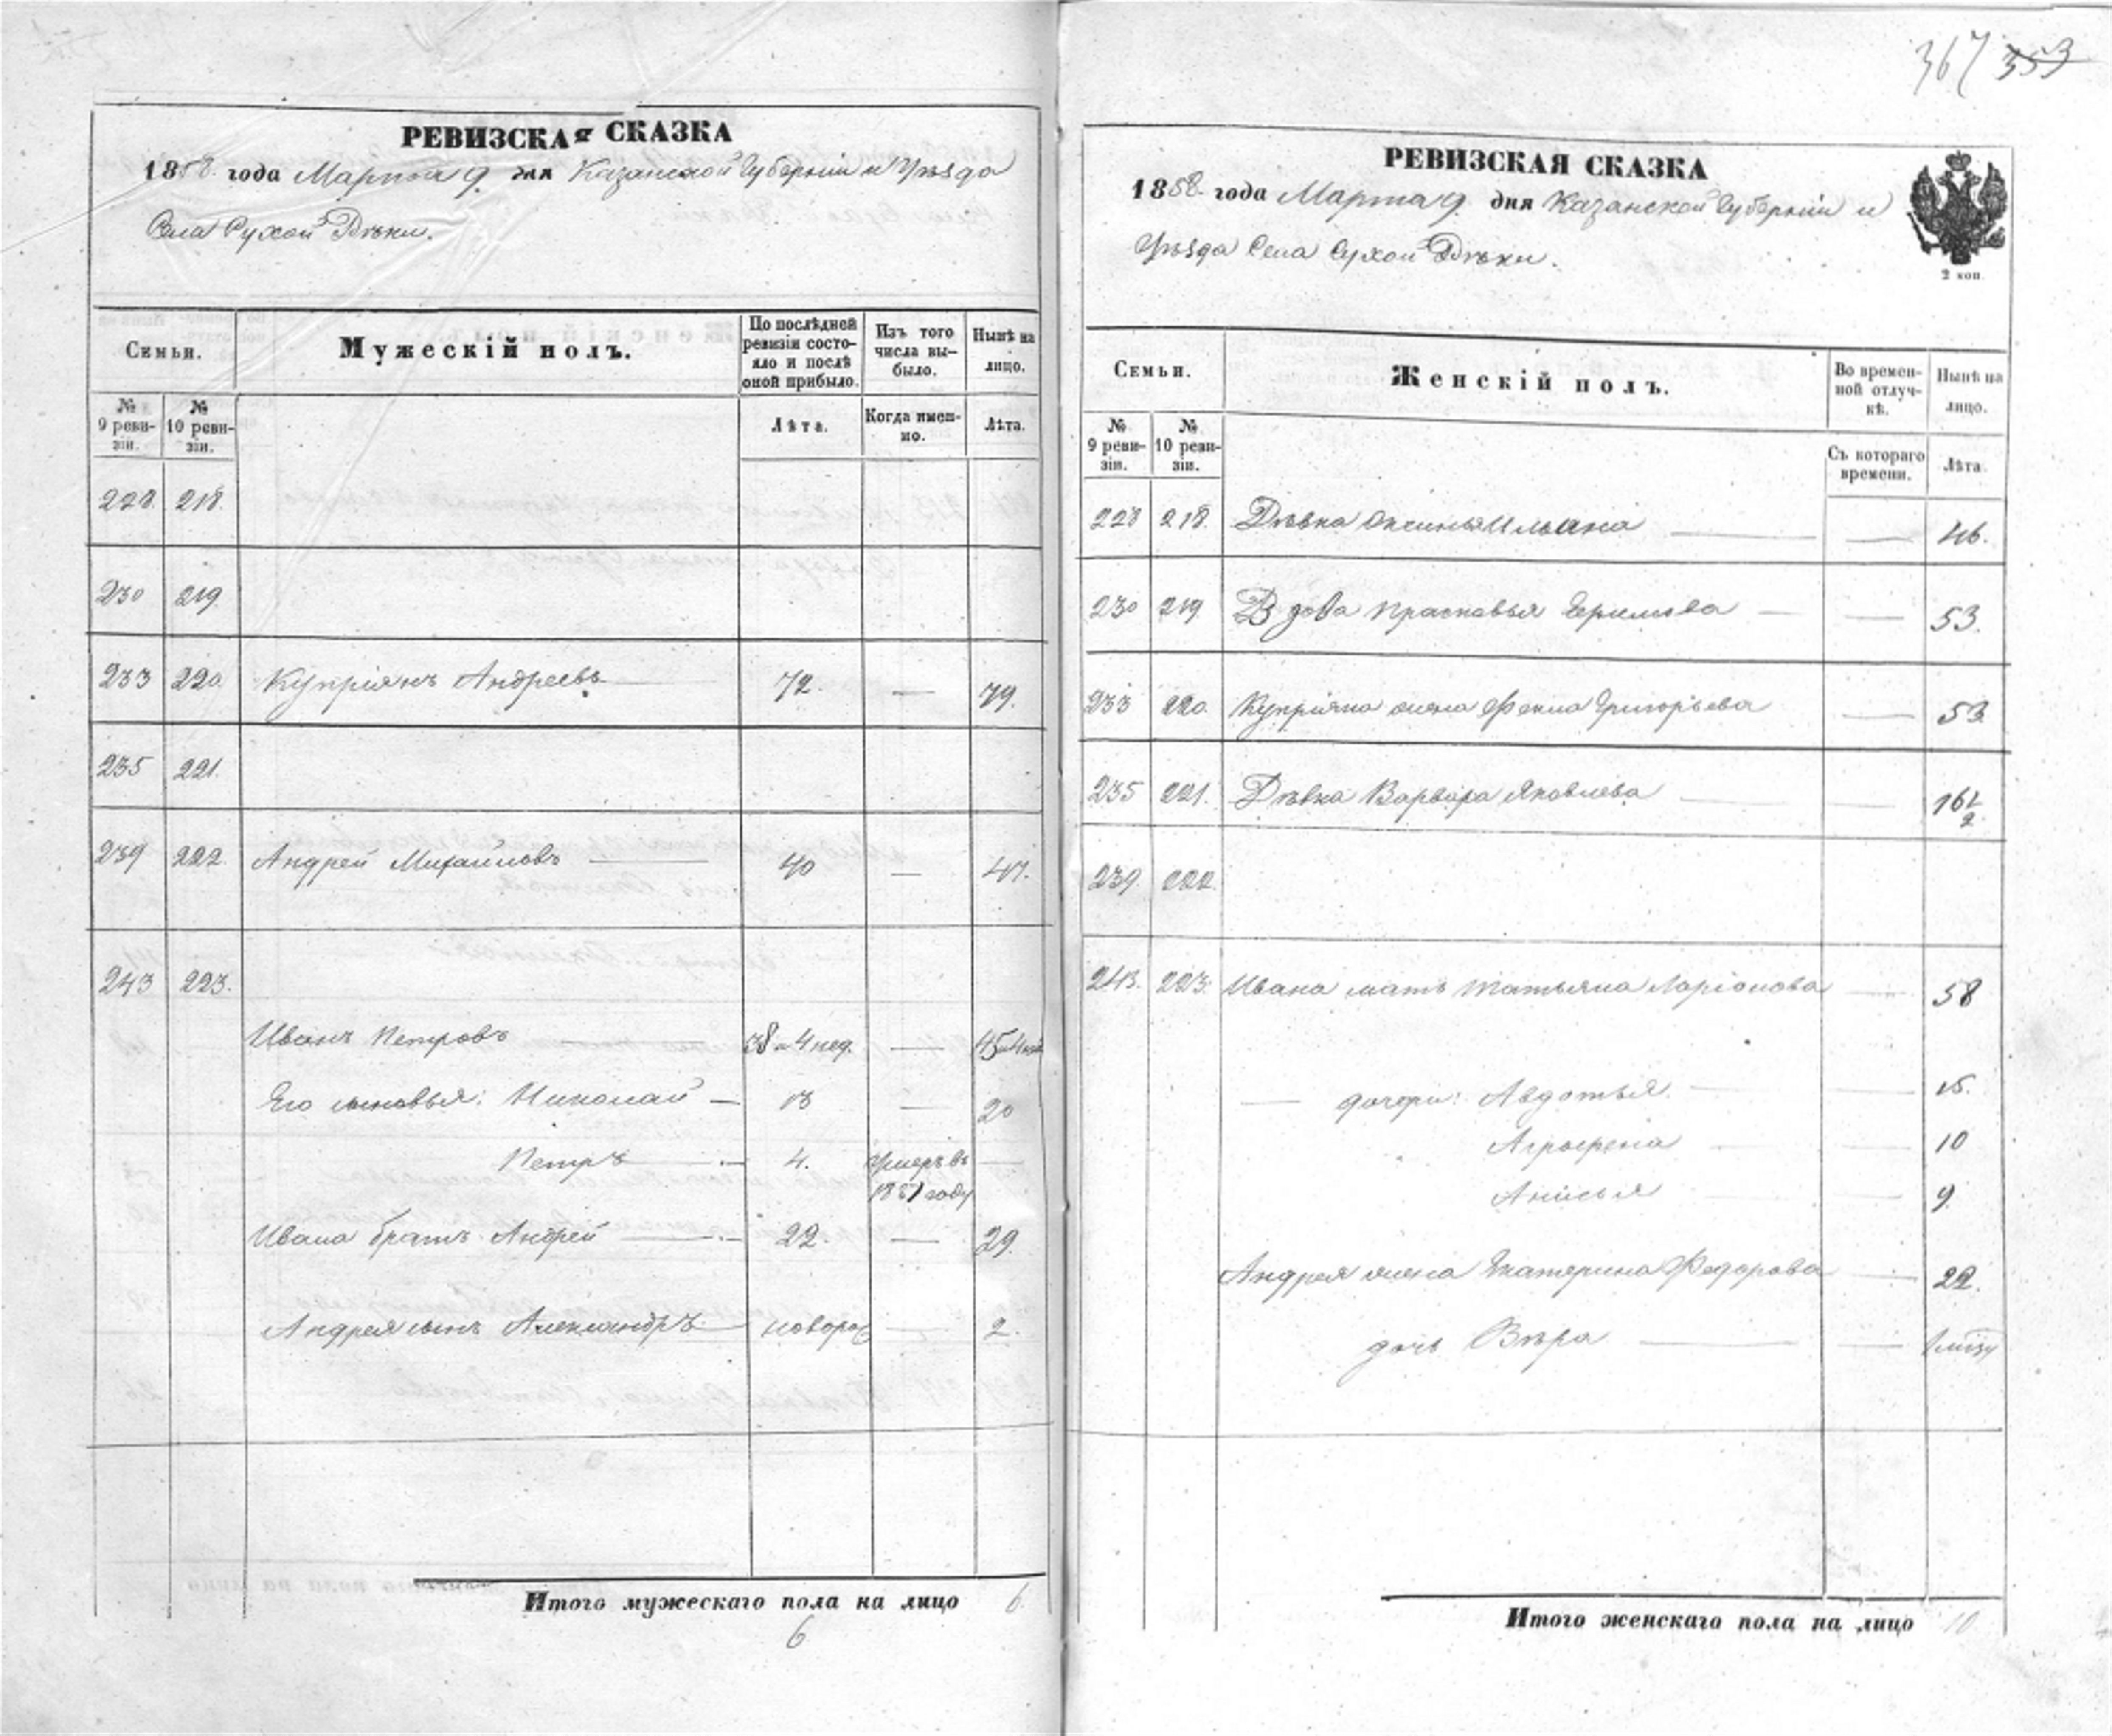 367 353
РЕВИЗСКАЯ СКАЗКА
1858. года Марта 9. дня Казанской Губерніи и Уѣзда
Села Сухой Рѣки.
Семьи.
Мужескій полъ.
По послѣдней ревизіи состояло и послѣ оной прибыло.
Изъ того числа выбыло.
Нынѣ на лицо.
№ 9 ревизіи.
№ 10 ревизіи.
Лѣта.
Когда именно.
Лѣта.
228. 218.
230 219.
233 220. Купріянъ Андреевъ 72. — 79.
235 221.
239 222. Андрей Михайловъ — 40 — 47.
243 223.
Иванъ Петровъ — 38 и 4 нед. — 45 и 4 нед
Его сыновья: Николай — 13 — 20
Петръ — 4. Умеръ въ —
1851 году
Ивана братъ Андрей — 22. — 29.
Андрея сынъ Александръ — новорож — 2.
Итого мужескаго пола на лицо 6.
6
РЕВИЗСКАЯ СКАЗКА
1858. года Марта 9. дня Казанской Губерніи и
Уѣзда Села Сухой Рѣки.
2 коп.
Семьи.
Женскій полъ.
Во временной отлучкѣ.
Нынѣ на лицо.
№ 9 ревизіи.
№ 10 ревизіи.
Съ котораго времени.
Лѣта.
228 218. Дѣвка Оксинья Ильина — — 46.
230 219. Вдова Прасковья — — 53.
233 220. Купріяна жена Фекла Григорьева — 53.
235 221. Дѣвка Варвара Яковлева — — 16 1/2.
239. 222.
243. 223. Ивана мать Татьяна Ларіонова — 58
— дочери: Авдотья. — — 15.
Аграфена — — 10
Анисья — — 9.
Андрея жена Екатерина Федорова — 22.
дочь Вѣра — —
Итого женскаго пола на лицо 10